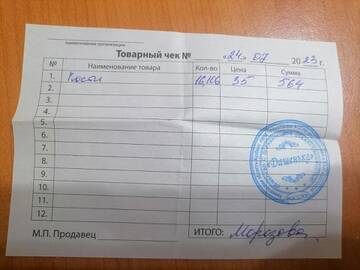 наименование организации
Товарный чек № «24» 07 2023 г.
№ Наименование товара Кол-во Цена Сумма
1. 35 564
2.
3.
4.
5.
6.
7.
8.
9.
10.
11.
12.
«Дашенька»
М.П. Продавец ИТОГО: Морозова